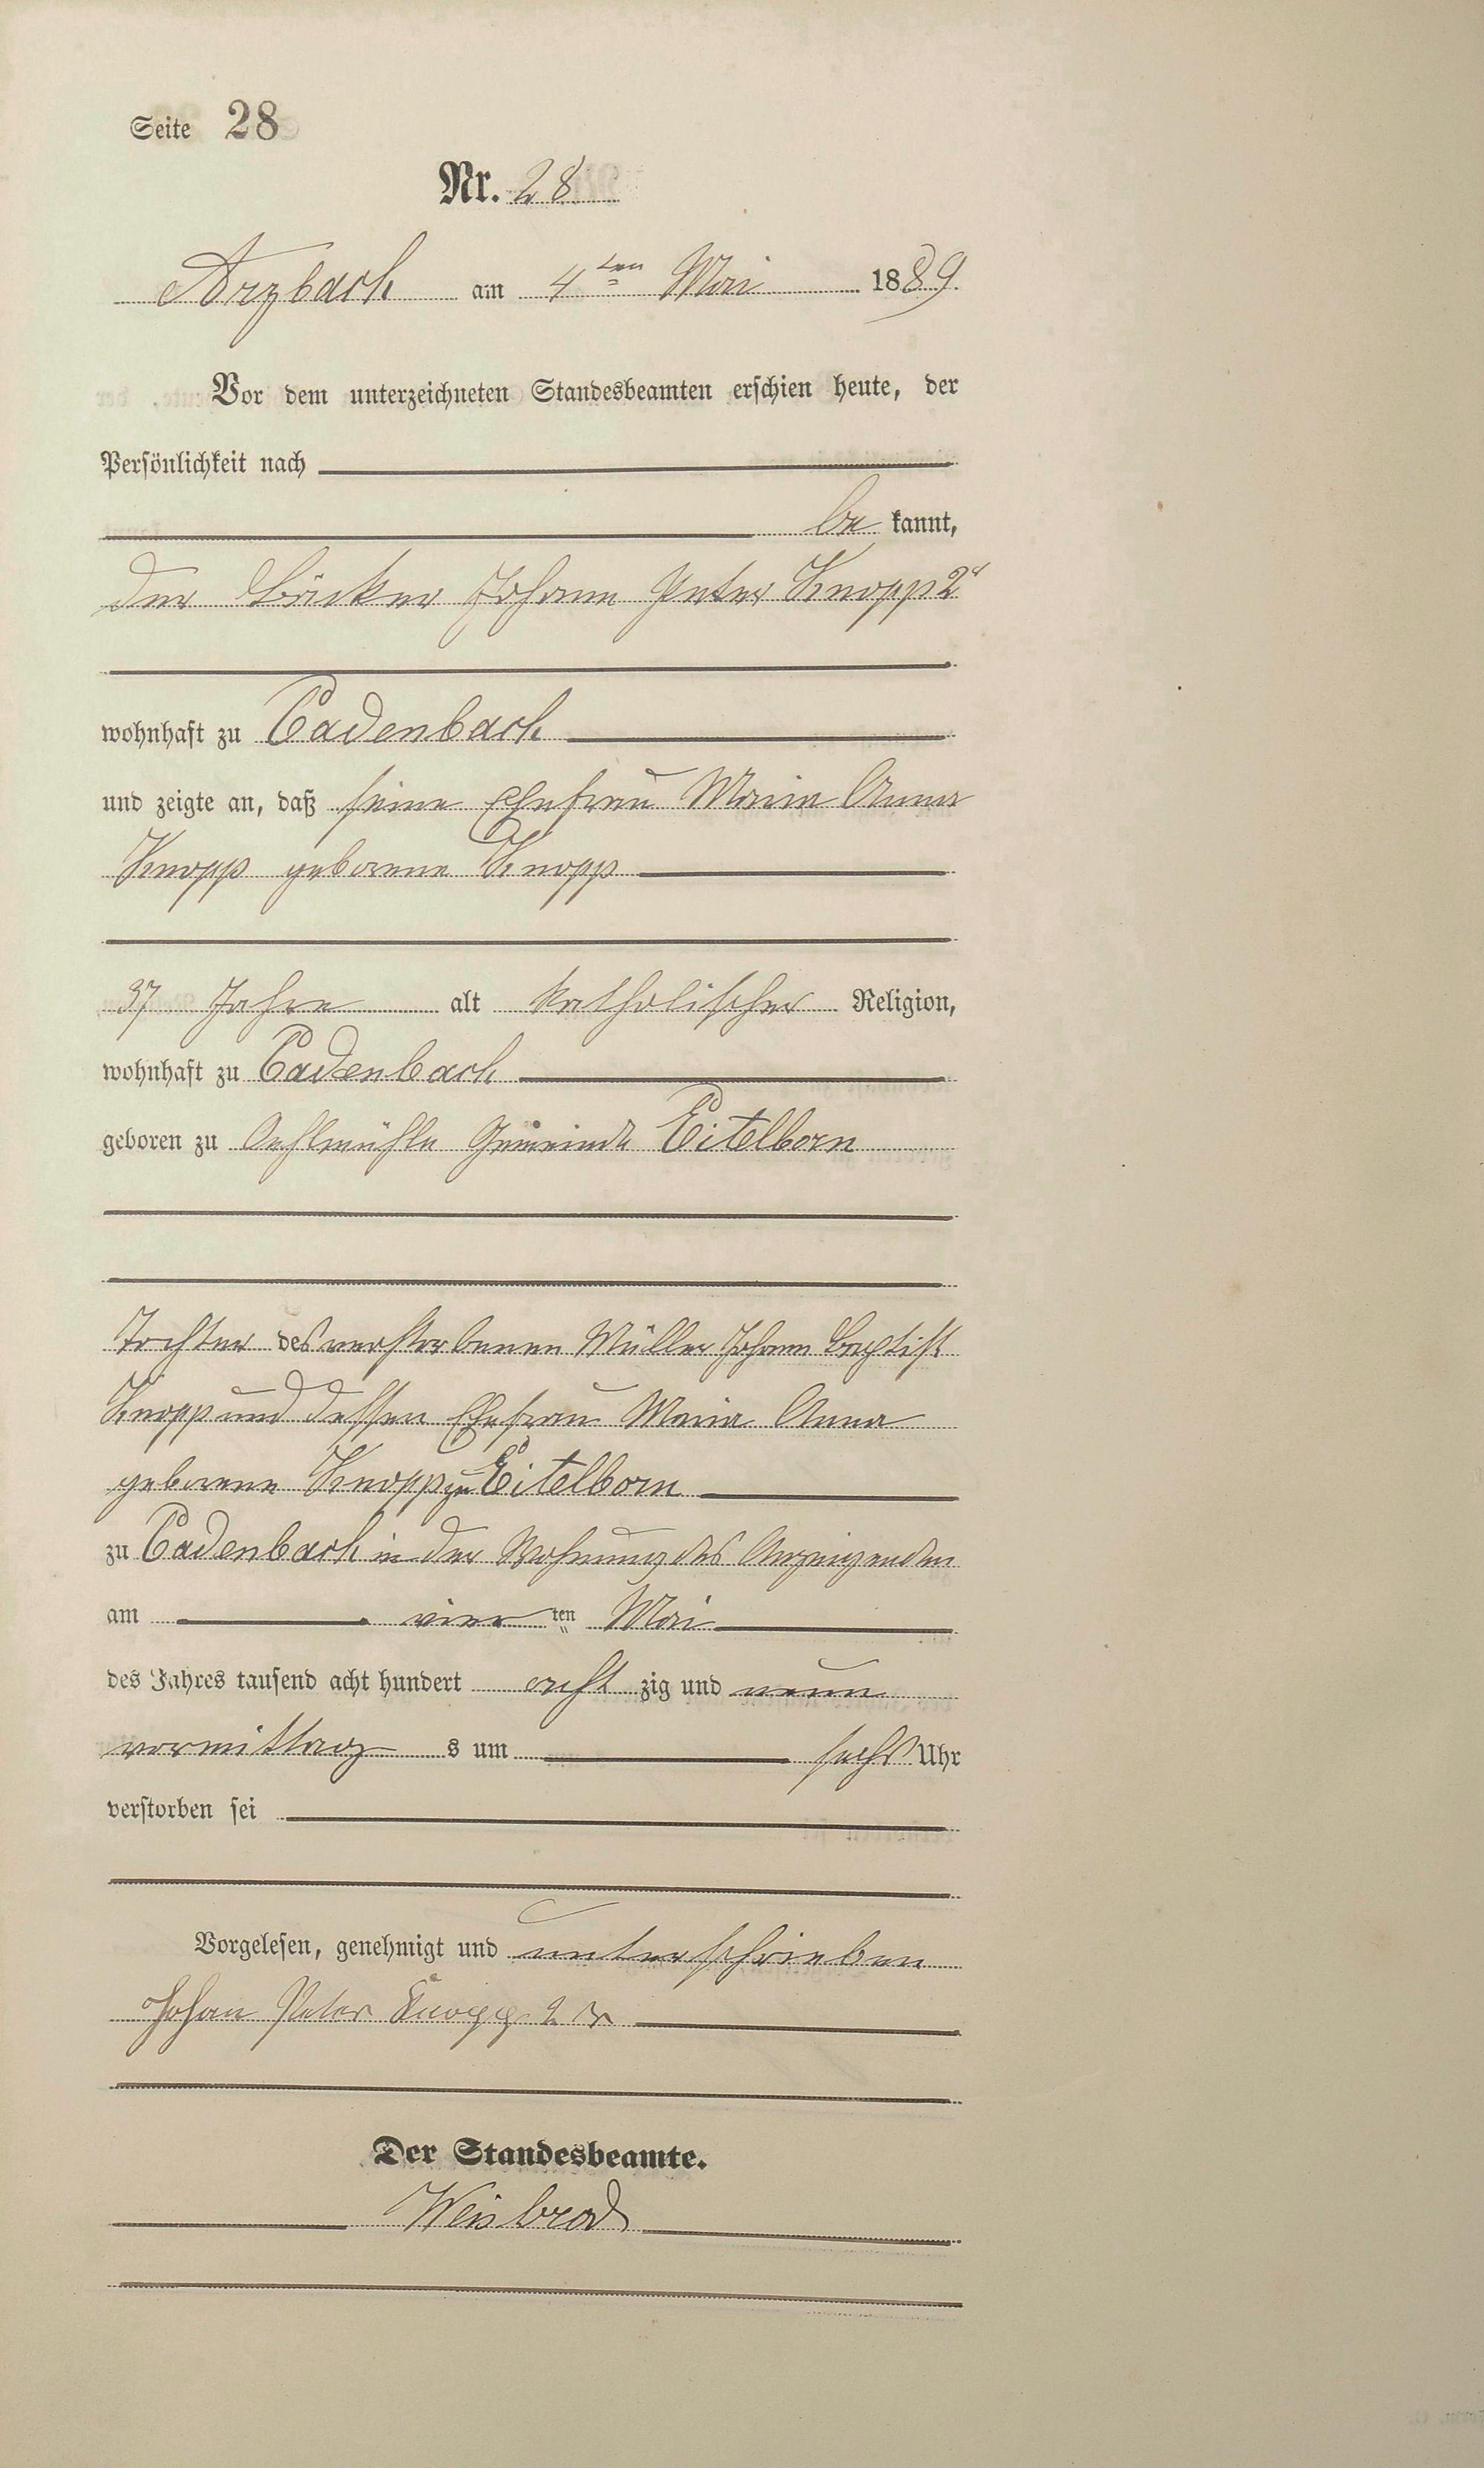 Seite 28
Nr. 28
Arzbach am 4ten Mai 1889.
Vor dem unterzeichneten Standesbeamten erschien heute, der
Persönlichkeit nach
be kannt,
der Bäcker Johann Peter Knopp 2r
wohnhaft zu Cadenbach
und zeigte an, daß seine Ehefrau Maria Anna
Knopp geborene Knopp
37 Jahre alt katholischer Religion,
wohnhaft zu Cadenbach
geboren zu Oehlmühle Gemeinde Eitelborn
Tochter des verstorbenen Müller Johann Baptist
Knopp und dessen Ehefrau Maria Anna
geborene Knopp zu Eitelborn
zu Cadenbach in der Wohnung des Anzeigenden
am vier ten Mai
des Jahres tausend acht hundert acht zig und neun
vormittag s um sechs Uhr
verstorben sei
Vorgelesen, genehmigt und unterschrieben
Johan Peter Knopp 2r
Der Standesbeamte.
Weisbrod